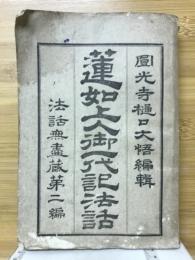 圓光寺樋口大悟編輯
蓮如上人御一代記法話
法話無盡藏第二編